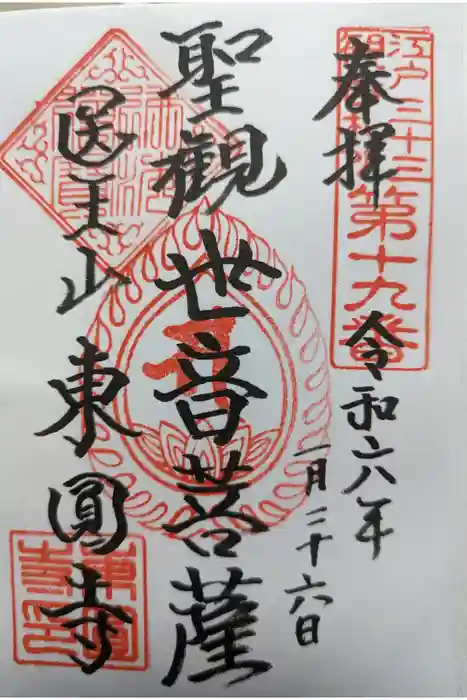 江戸三十三
観音札所
第十九番
奉拝
令和六年
一月二十六日
聖観世音菩薩
医王山
東圓寺
東圓
寺印